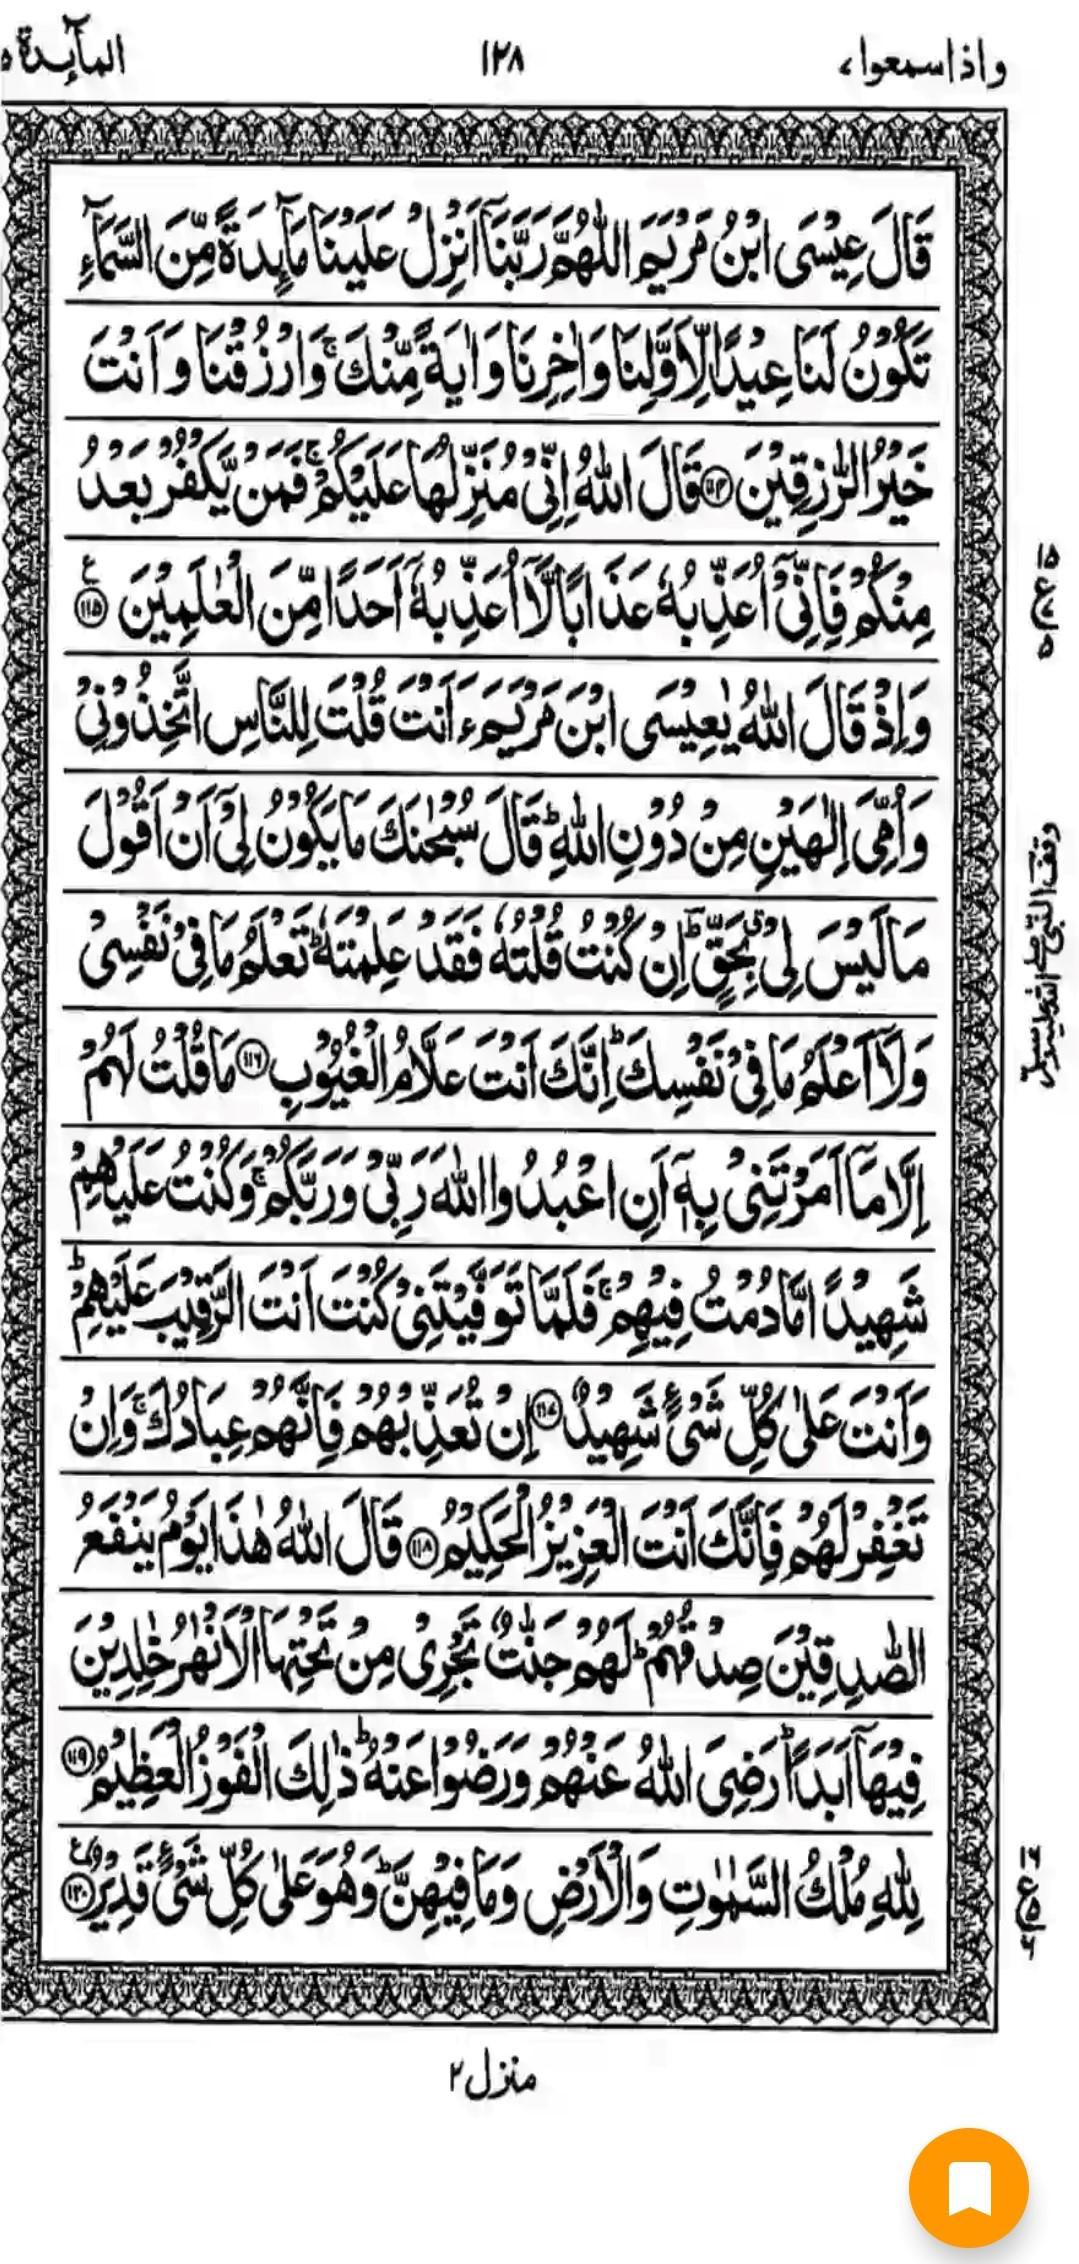 واذاسمعوا ٧
١٢٨
المآئدة ٥
قَالَ عِیْسَی ابْنُ مَرْیَمَ اللّٰهُمَّ رَبَّنَاۤ اَنْزِلْ عَلَیْنَا مَآئِدَةً مِّنَ السَّمَآءِ
تَكُوْنُ لَنَا عِیْدًا لِّاَوَّلِنَا وَاٰخِرِنَا وَاٰیَةً مِّنْكَ ۚ وَارْزُقْنَا وَاَنْتَ
خَیْرُ الرّٰزِقِیْنَ ﴿۱۱۴﴾ قَالَ اللّٰهُ اِنِّیْ مُنَزِّلُهَا عَلَیْكُمْ ۚ فَمَنْ یَّكْفُرْ بَعْدُ
مِنْكُمْ فَاِنِّیْۤ اُعَذِّبُهٗ عَذَابًا لَّاۤ اُعَذِّبُهٗۤ اَحَدًا مِّنَ الْعٰلَمِیْنَ ﴿۱۱۵﴾ ع
وَاِذْ قَالَ اللّٰهُ یٰعِیْسَی ابْنَ مَرْیَمَ ءَاَنْتَ قُلْتَ لِلنَّاسِ اتَّخِذُوْنِیْ
وَاُمِّیَ اِلٰهَیْنِ مِنْ دُوْنِ اللّٰهِ ؕ قَالَ سُبْحٰنَكَ مَا یَكُوْنُ لِیْۤ اَنْ اَقُوْلَ
مَا لَیْسَ لِیْ ۗ بِحَقٍّ ؕ اِنْ كُنْتُ قُلْتُهٗ فَقَدْ عَلِمْتَهٗ ؕ تَعْلَمُ مَا فِیْ نَفْسِیْ
وَلَاۤ اَعْلَمُ مَا فِیْ نَفْسِكَ ؕ اِنَّكَ اَنْتَ عَلَّامُ الْغُیُوْبِ ﴿۱۱۶﴾ مَا قُلْتُ لَهُمْ
اِلَّا مَاۤ اَمَرْتَنِیْ بِهٖۤ اَنِ اعْبُدُوا اللّٰهَ رَبِّیْ وَرَبَّكُمْ ۚ وَكُنْتُ عَلَیْهِمْ
شَهِیْدًا مَّا دُمْتُ فِیْهِمْ ۚ فَلَمَّا تَوَفَّیْتَنِیْ كُنْتَ اَنْتَ الرَّقِیْبَ عَلَیْهِمْ ؕ
وَاَنْتَ عَلٰی كُلِّ شَیْءٍ شَهِیْدٌ ﴿۱۱۷﴾ اِنْ تُعَذِّبْهُمْ فَاِنَّهُمْ عِبَادُكَ ۚ وَاِنْ
تَغْفِرْ لَهُمْ فَاِنَّكَ اَنْتَ الْعَزِیْزُ الْحَكِیْمُ ﴿۱۱۸﴾ قَالَ اللّٰهُ هٰذَا یَوْمُ یَنْفَعُ
الصّٰدِقِیْنَ صِدْقُهُمْ ؕ لَهُمْ جَنّٰتٌ تَجْرِیْ مِنْ تَحْتِهَا الْاَنْهٰرُ خٰلِدِیْنَ
فِیْهَاۤ اَبَدًا ؕ رَضِیَ اللّٰهُ عَنْهُمْ وَرَضُوْا عَنْهُ ؕ ذٰلِكَ الْفَوْزُ الْعَظِیْمُ ﴿۱۱۹﴾
لِلّٰهِ مُلْكُ السَّمٰوٰتِ وَالْاَرْضِ وَمَا فِیْهِنَّ ؕ وَهُوَ عَلٰی كُلِّ شَیْءٍ قَدِیْرٌ ﴿۱۲۰﴾ ع
١٥
ع
٥
وقف النبی صلی الله علیه وسلم
١٦
ع
٥
٦
منزل ٢